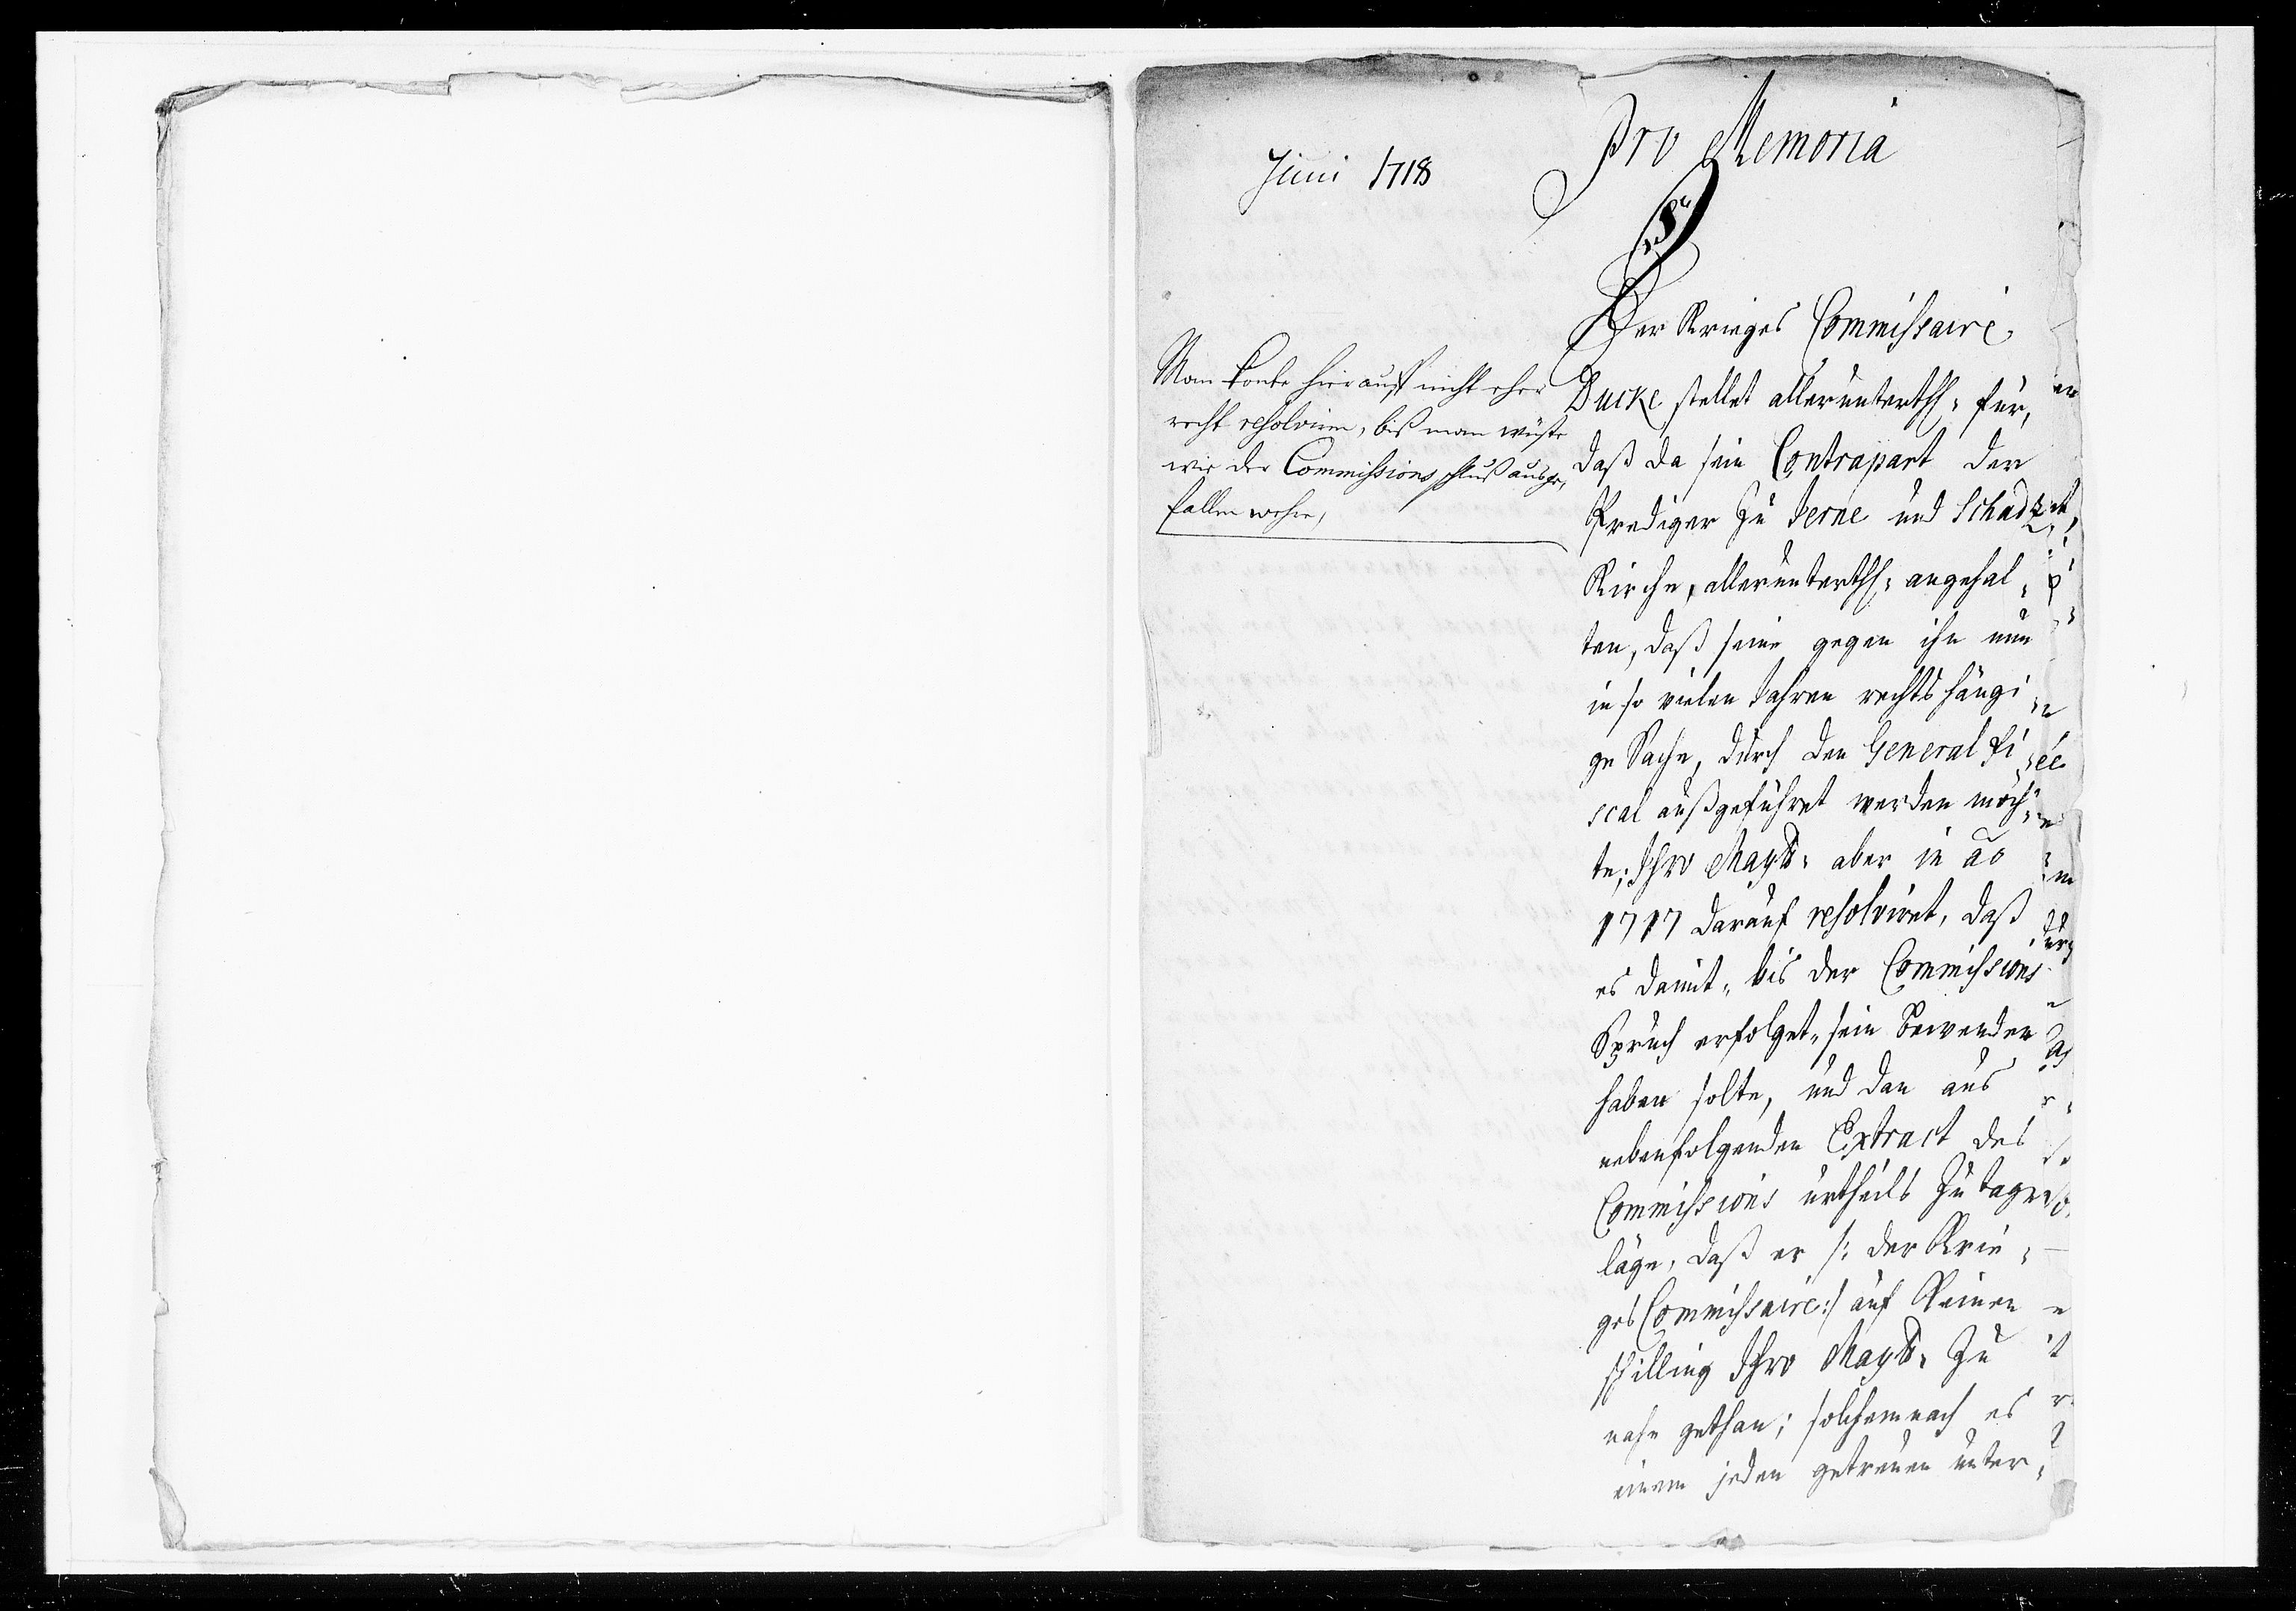 Juni 1718
Pro Memoria
Man konte hierauff nicht eher
recht resolviren, biß man wüste
wie der Commissions schluß ausge,
fallen wehre,
Der Krieges Commissaire
Ducke stellet allerunterth: für,
daß da sein Contrapart der
Prediger zu Jerne und Schads
Kirche, allerunterth: angehal-
ten, daß seine gegen ihn nun
in so vielen Jahren rechtshängi
ge Sache, durch den General Fi
scal außgeführet werden möch-
te; Ihro Maytt: aber in ao
1717 darauf resolviret, daß
es damit, bis der Commissions
Spruch erfolget, sein bewenden
haben solte, und dan aus
nebenfolgenden Extract des
Commissions urtheils zu tage
läge, daß er /: der Krie-
ges Commissaire :/ auf keinen
schilling Ihro Maytt: zu
nahe gethan; solchemnach es
einem jeden getreuen unter-